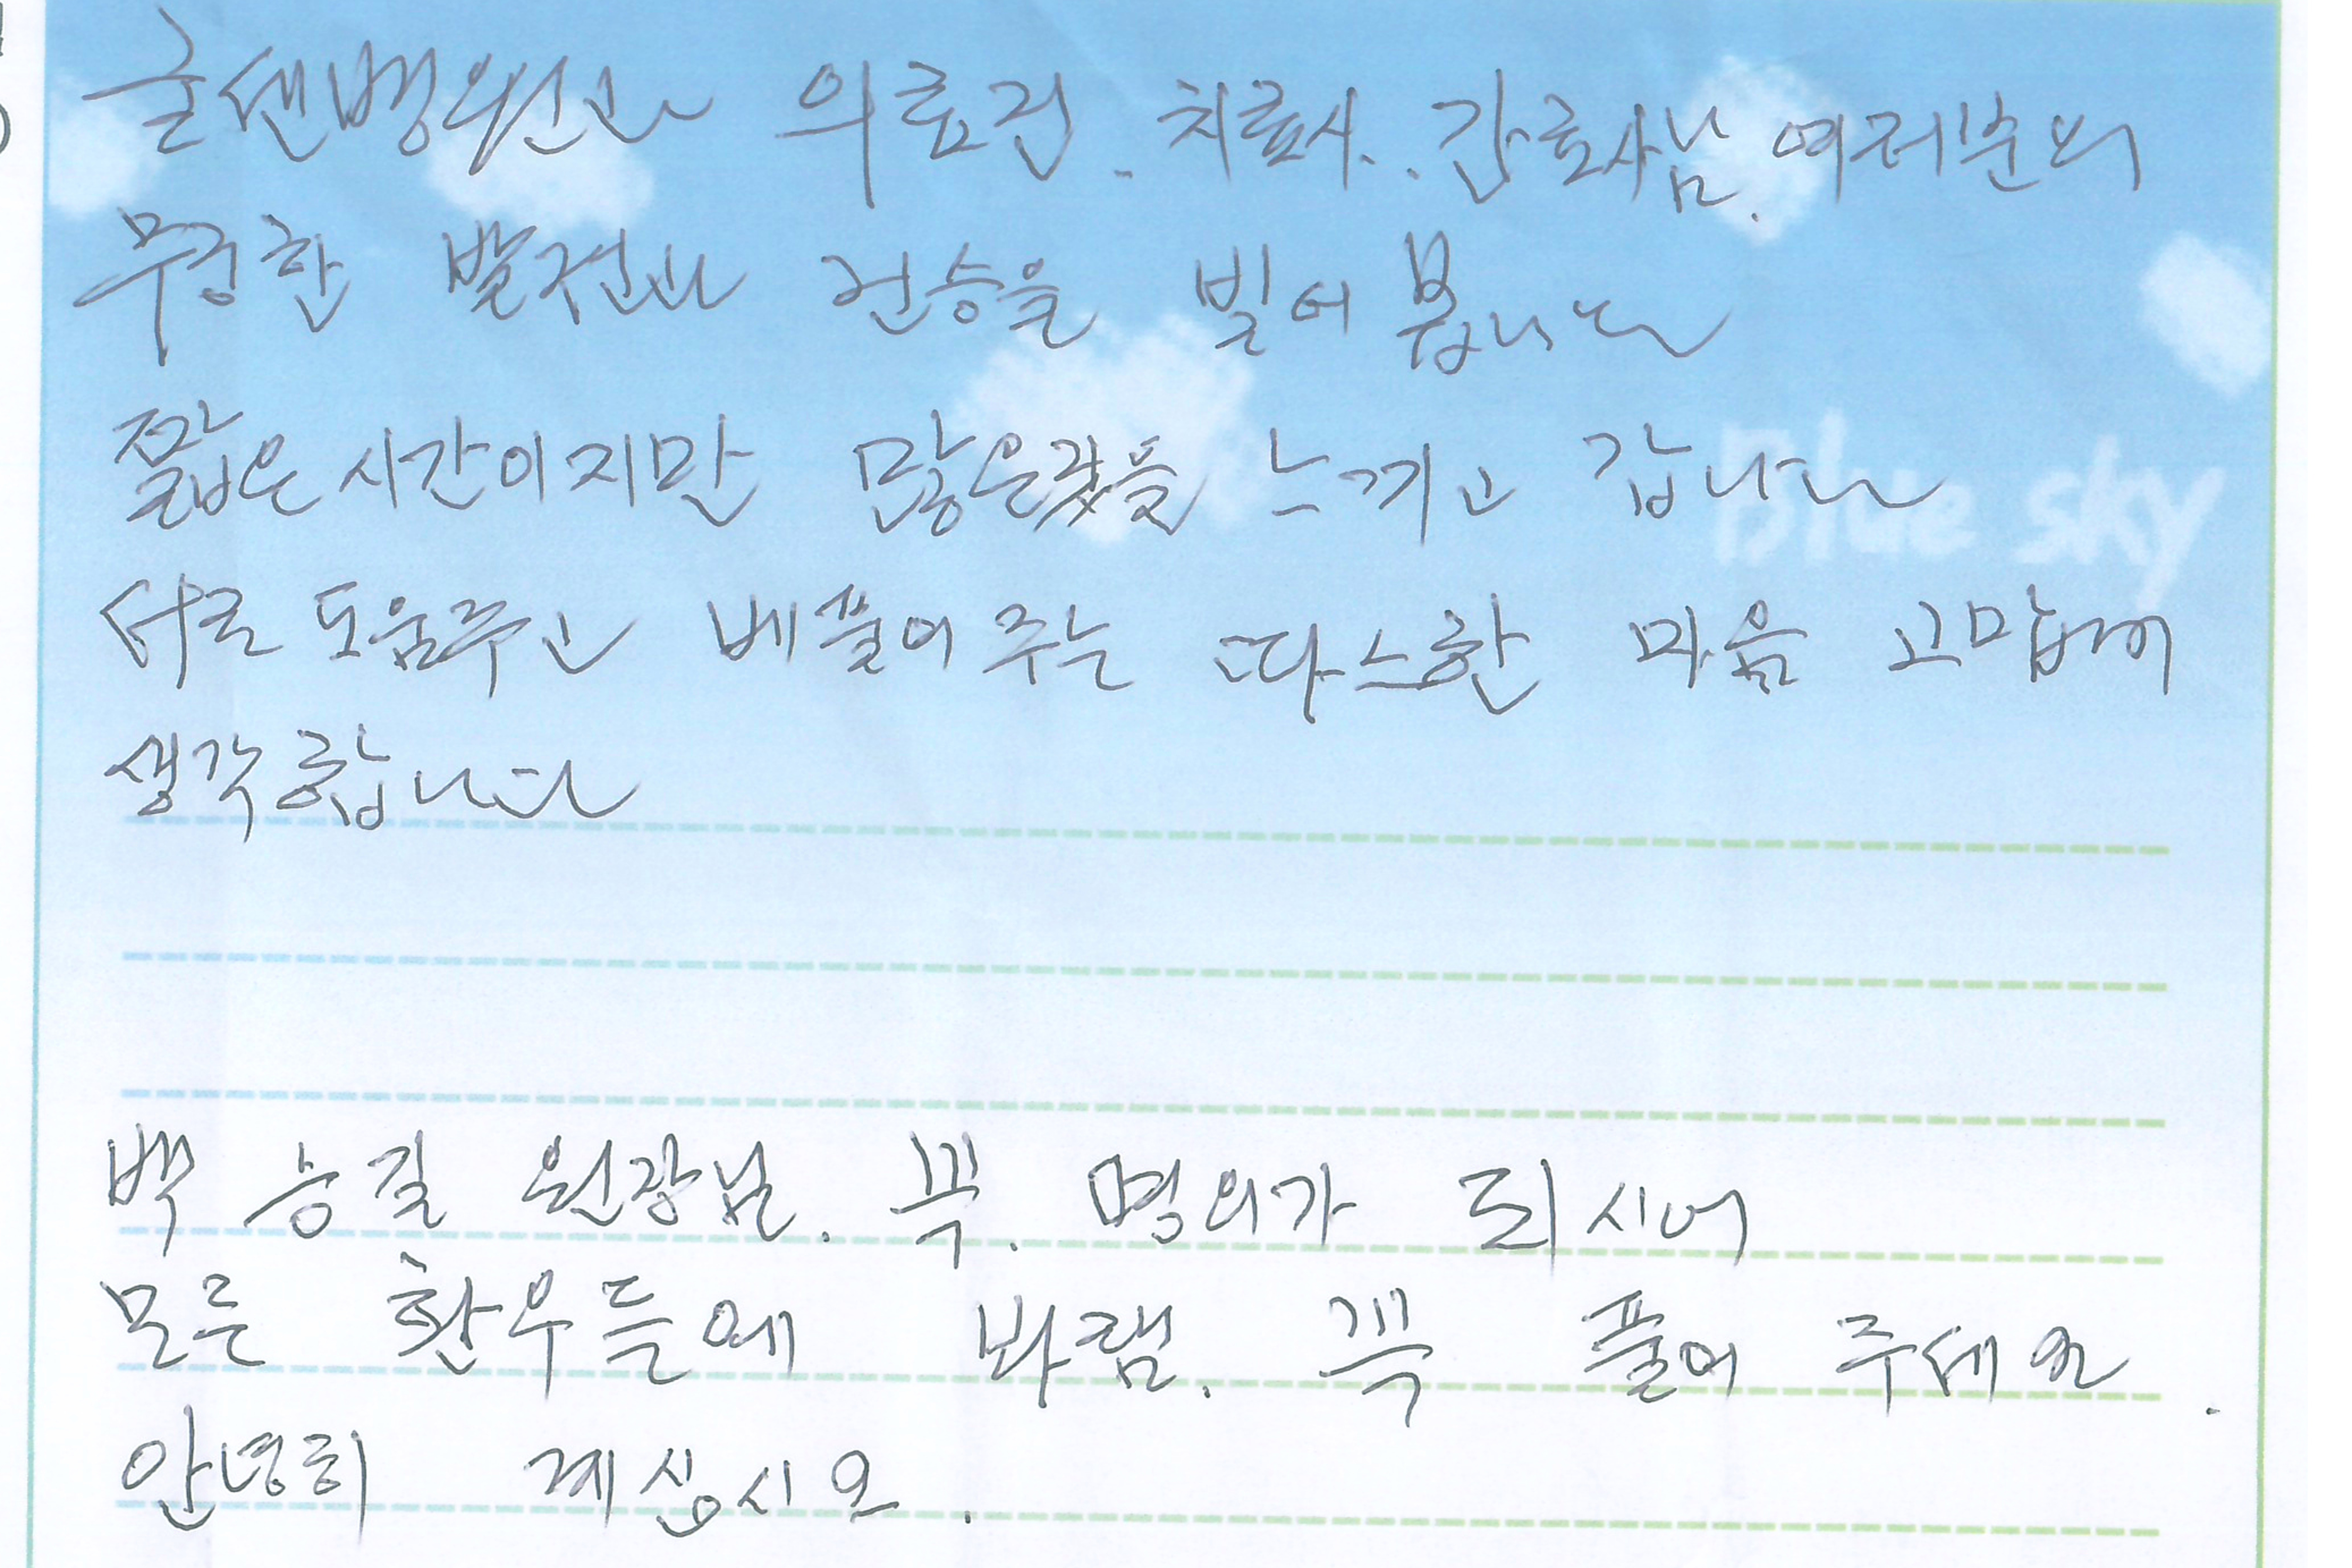 굴센병원과 의료진. 치료사. 간호사님. 여러분의
무궁한 발전과 건승을 빌어 봅니다
짧은 시간이지만 많은것을 느끼고 갑니다
Blue sky
서로 도움주고 베풀어 주는 따스한 마음 고맙게
생각합니다
백 승길 원장님. 꼭. 명의가 되시어
모든 환우들에 바램. 꼭 풀어 주세요.
안녕히 계십시오.